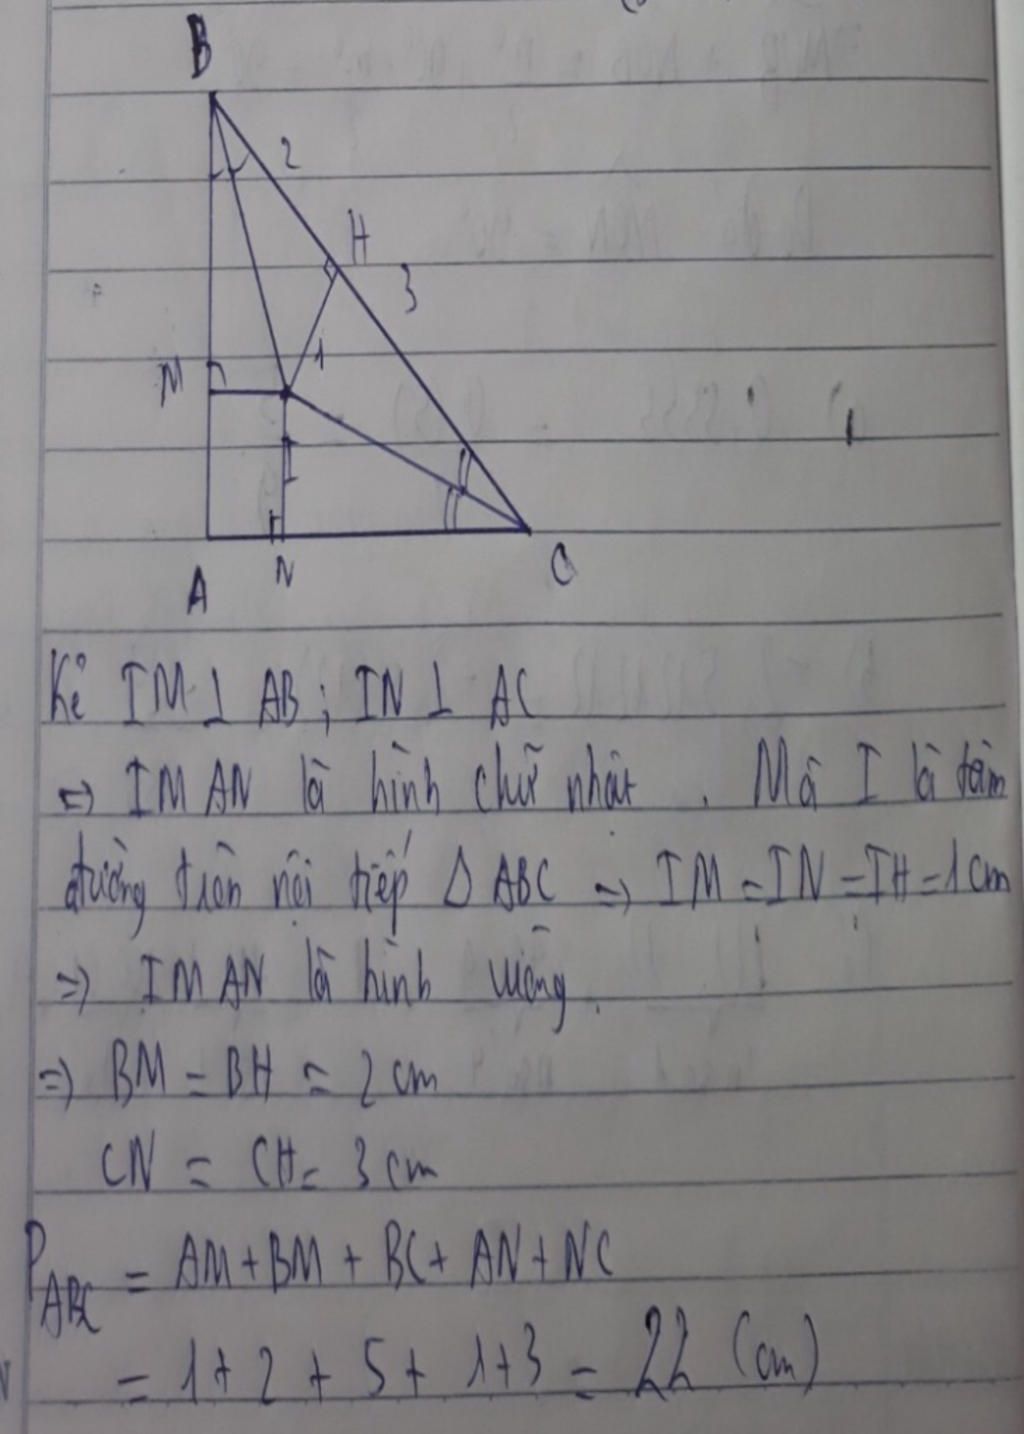 B
2
H
3
1
M
I
N
A
C
Kẻ IM ⊥ AB ; IN ⊥ AC
=> IMAN là hình chữ nhật . Mà I là tâm
đường tròn nội tiếp Δ ABC => IM = IN = IH = 1cm
=> IMAN là hình vuông.
=> BM = BH = 2 cm
CN = CH = 3 cm
P_ABC = AM + BM + BC + AN + NC
= 1 + 2 + 5 + 1 + 3 = 22 (cm)